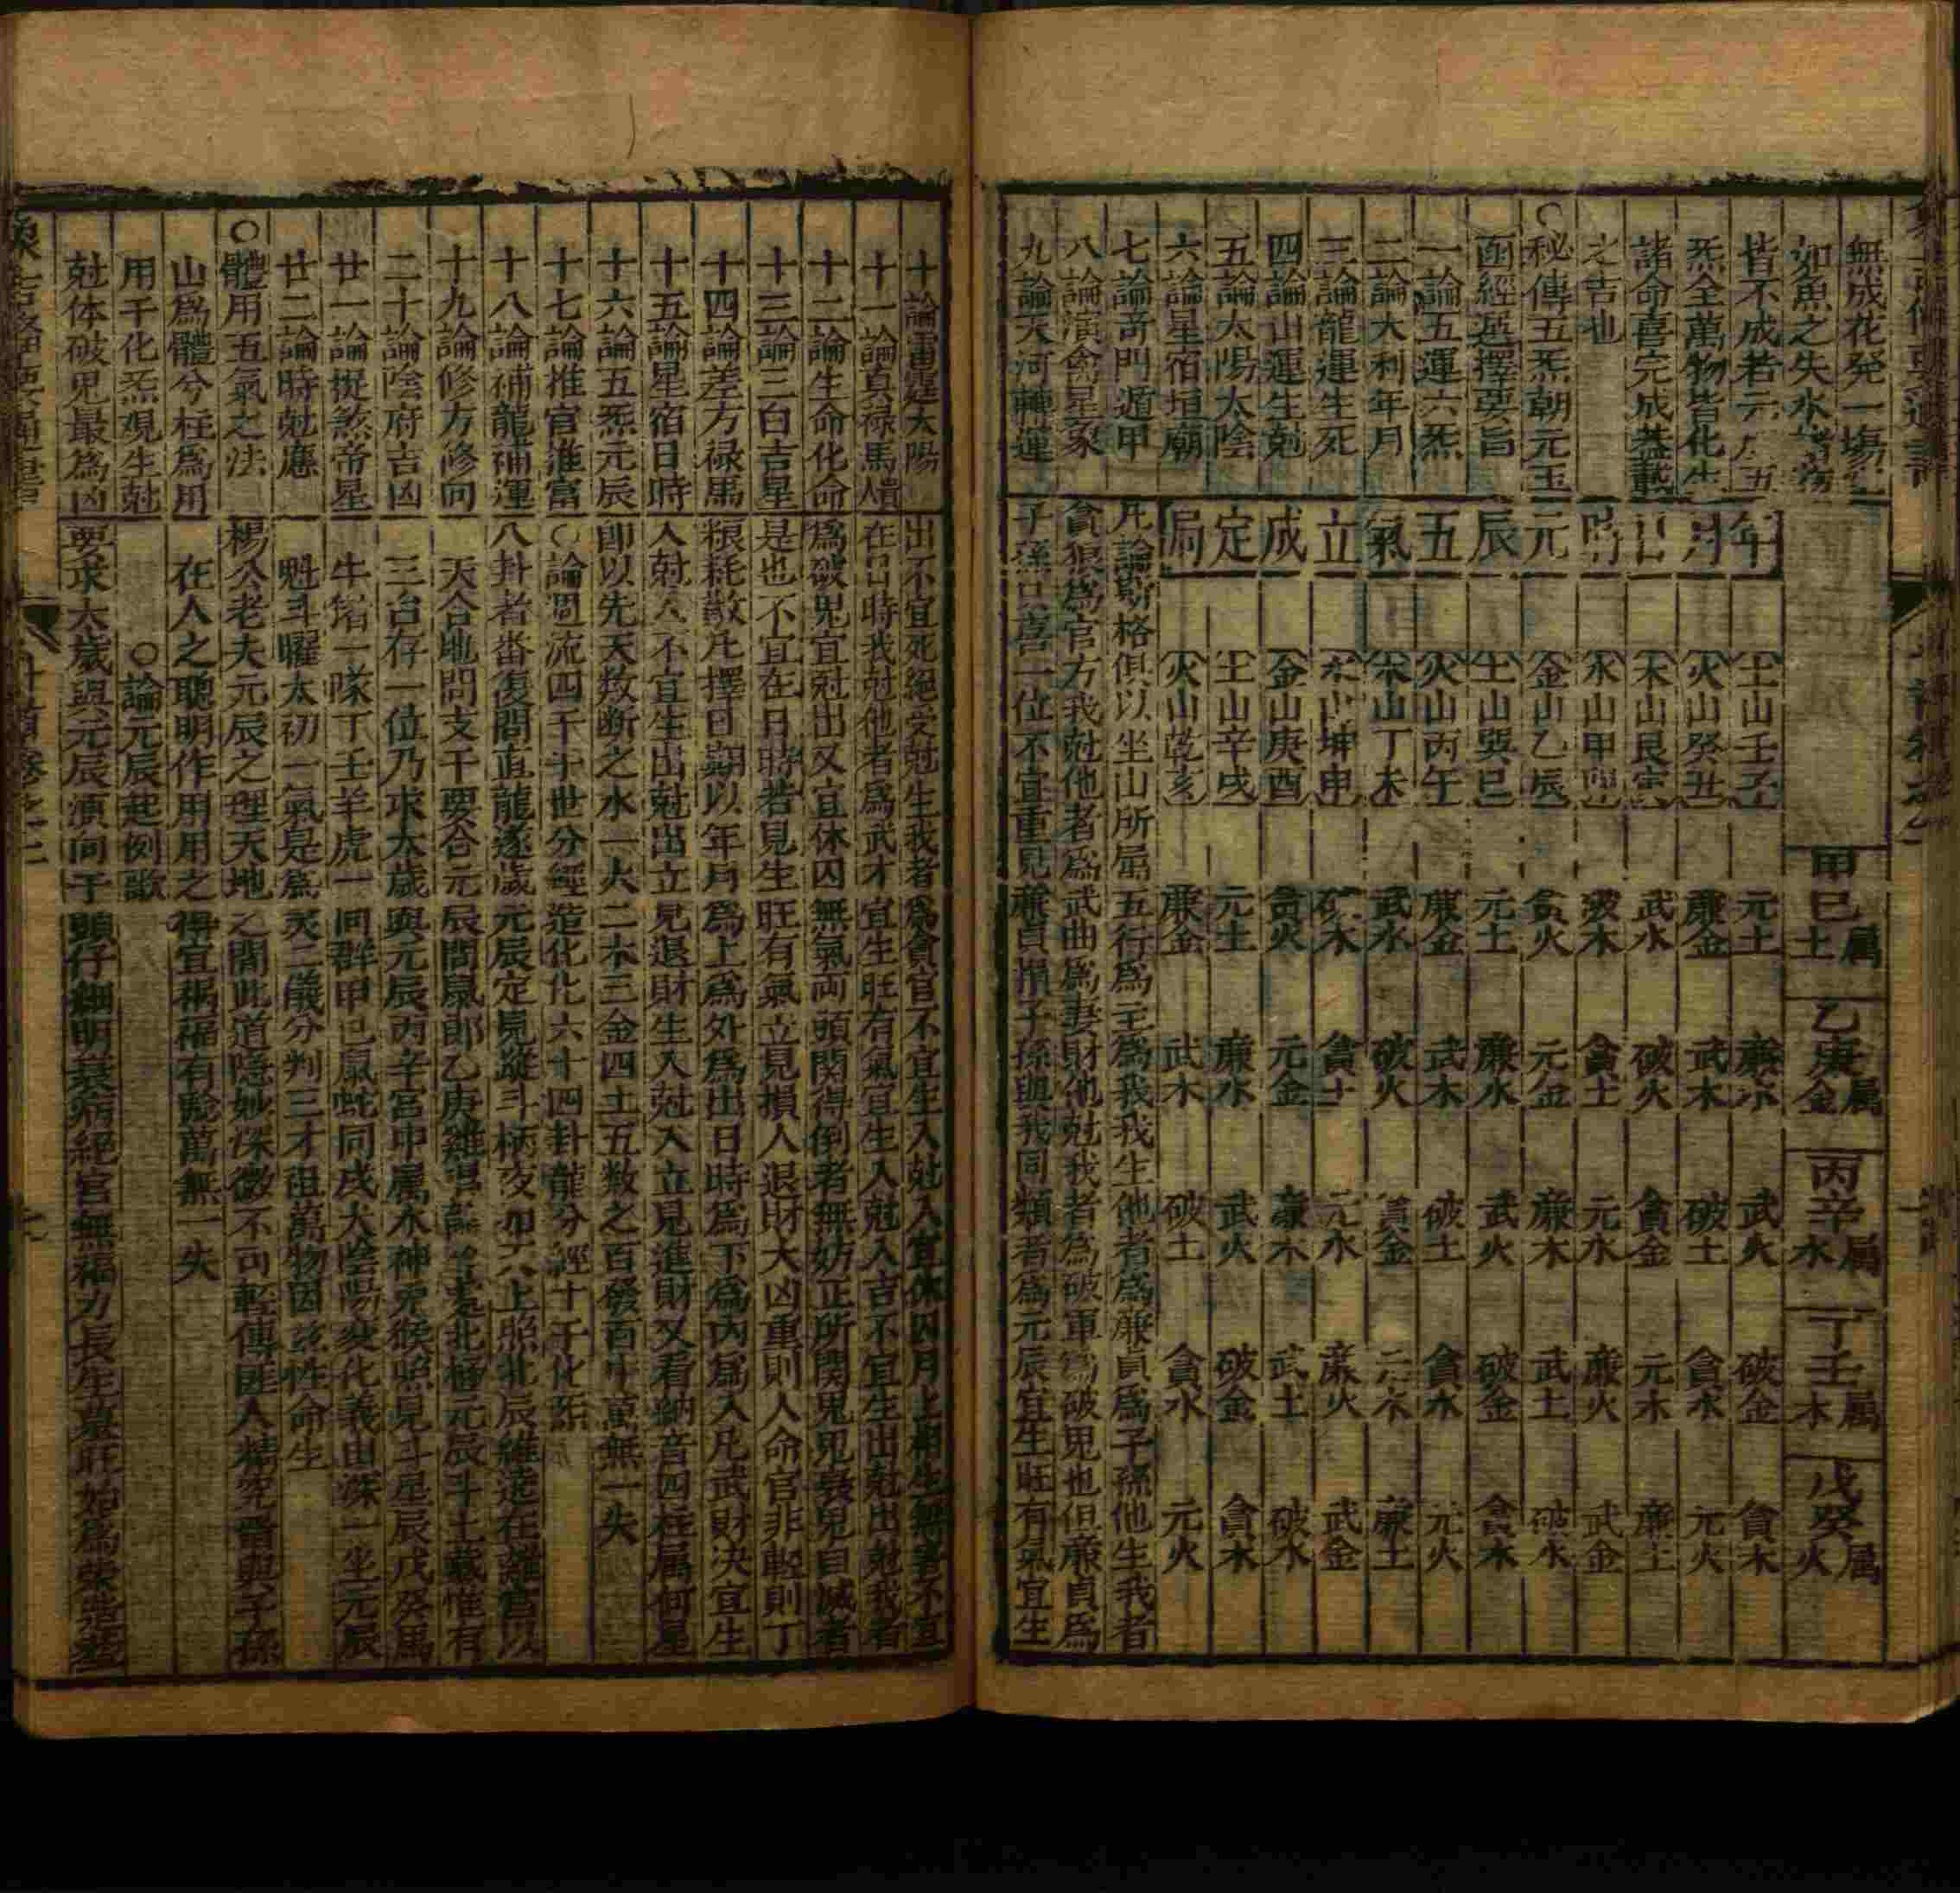 無成花発一塲
如魚之失水
皆不成若元
炁全萬物皆化生
諸命喜完成
之吉也
○秘傳五炁朝元玉
函經選擇要旨
一論五運六炁
二論大利年月
三論龍運生死
四論山運生尅
五論太陽太陰
六論星宿垣廟
七論奇門遁甲
八論演禽星象
九論天河轉運
年月日時元辰五氣立成定局
甲巳属土
乙庚属金
丙辛属水
丁壬属木
戊癸属火
土山壬子 元土 廉水 武火 破金 貪木
火山癸丑 廉金 武木 破土 貪水 元火
木山艮寅 武水 破火 貪金 元木 廉土
水山甲卯 破木 貪土 元水 廉火 武金
金山乙辰 貪火 元金 廉木 武土 破水
土山巽巳 元土 廉水 武火 破金 貪木
火山丙午 廉金 武木 破土 貪水 元火
木山丁未 武水 破火 貪金 元木 廉土
水山坤申 破木 貪土 元水 廉火 武金
金山庚酉 貪火 元金 廉木 武土 破水
土山辛戌 元土 廉水 武火 破金 貪木
火山乾亥 廉金 武木 破土 貪水 元火
凡論斯格俱以坐山所属五行爲主爲我我生他者爲廉貞爲子孫他生我者
貪狼爲官方我尅他者爲武曲爲妻財他尅我者爲破軍爲破鬼也但廉貞爲
子孫只喜一位不宜重見廉貞損子孫與我同類者爲元辰宜生旺有氣宜生
十論雷霆太陽
十一論真禄馬貴
十二論生命化命
十三論三白吉星
十四論差方禄馬
十五論星宿日時
十六論五炁元辰
十七論推官進富
十八論補龍補運
十九論修方修向
二十論陰府吉凶
廿一論捉煞帝星
廿二論時尅應
○體用五氣之法
山爲體兮柱爲用
用干化炁观生尅
尅体破鬼最爲凶
出不宜死絕受尅生我者爲貪官不宜生入尅入宜休囚月上相生無害不宜
在日時我尅他者爲武才宜生旺有氣宜生入尅入吉不宜生出尅出尅我者
爲破鬼宜尅出又宜休囚無氣両頭関得倒者無妨正所関鬼鬼衰鬼自滅者
是也不宜在日時若見生旺有氣立見損人退財大凶重則人命官非輕則丁
粮耗散凡擇日期以年月爲上爲外爲出日時爲下爲内爲入凡武財决宜生
入尅入不宜生出尅出立見退財生入尅入立見進財又看納音四柱属何星
即以先天数断之水一火二木三金四土五数之百發百中萬無一失
○論週流四千十世分經造化化六十四卦龍分經十干化炁
八卦者番復間直龍遂歲元辰定見蹤斗柄夜加六上照北辰維遠在離宮以
天合地問支干要合元辰間鼠郎乙庚雞北極元辰斗土載惟有
三台存一位乃求太歲與元辰丙辛宮中属水神兇猴照見斗星辰戊癸馬
牛猪一隊丁壬羊虎一同群甲已鼠蛇同戌犬陰陽変化義由深一坐元辰
魁斗曜太初一氣是爲灵二儀分判三才阻萬物因玆性命生
楊公老夫元辰之理天地之間此道隠妙深微不可輕傳匪人精究習與子孫
在人之聰明作用用之得宜禍福有驗萬無一失
○論元辰起例歌
要求太歲與元辰演向于頭仔細明衰病絕官無福力長生墓旺始爲荣